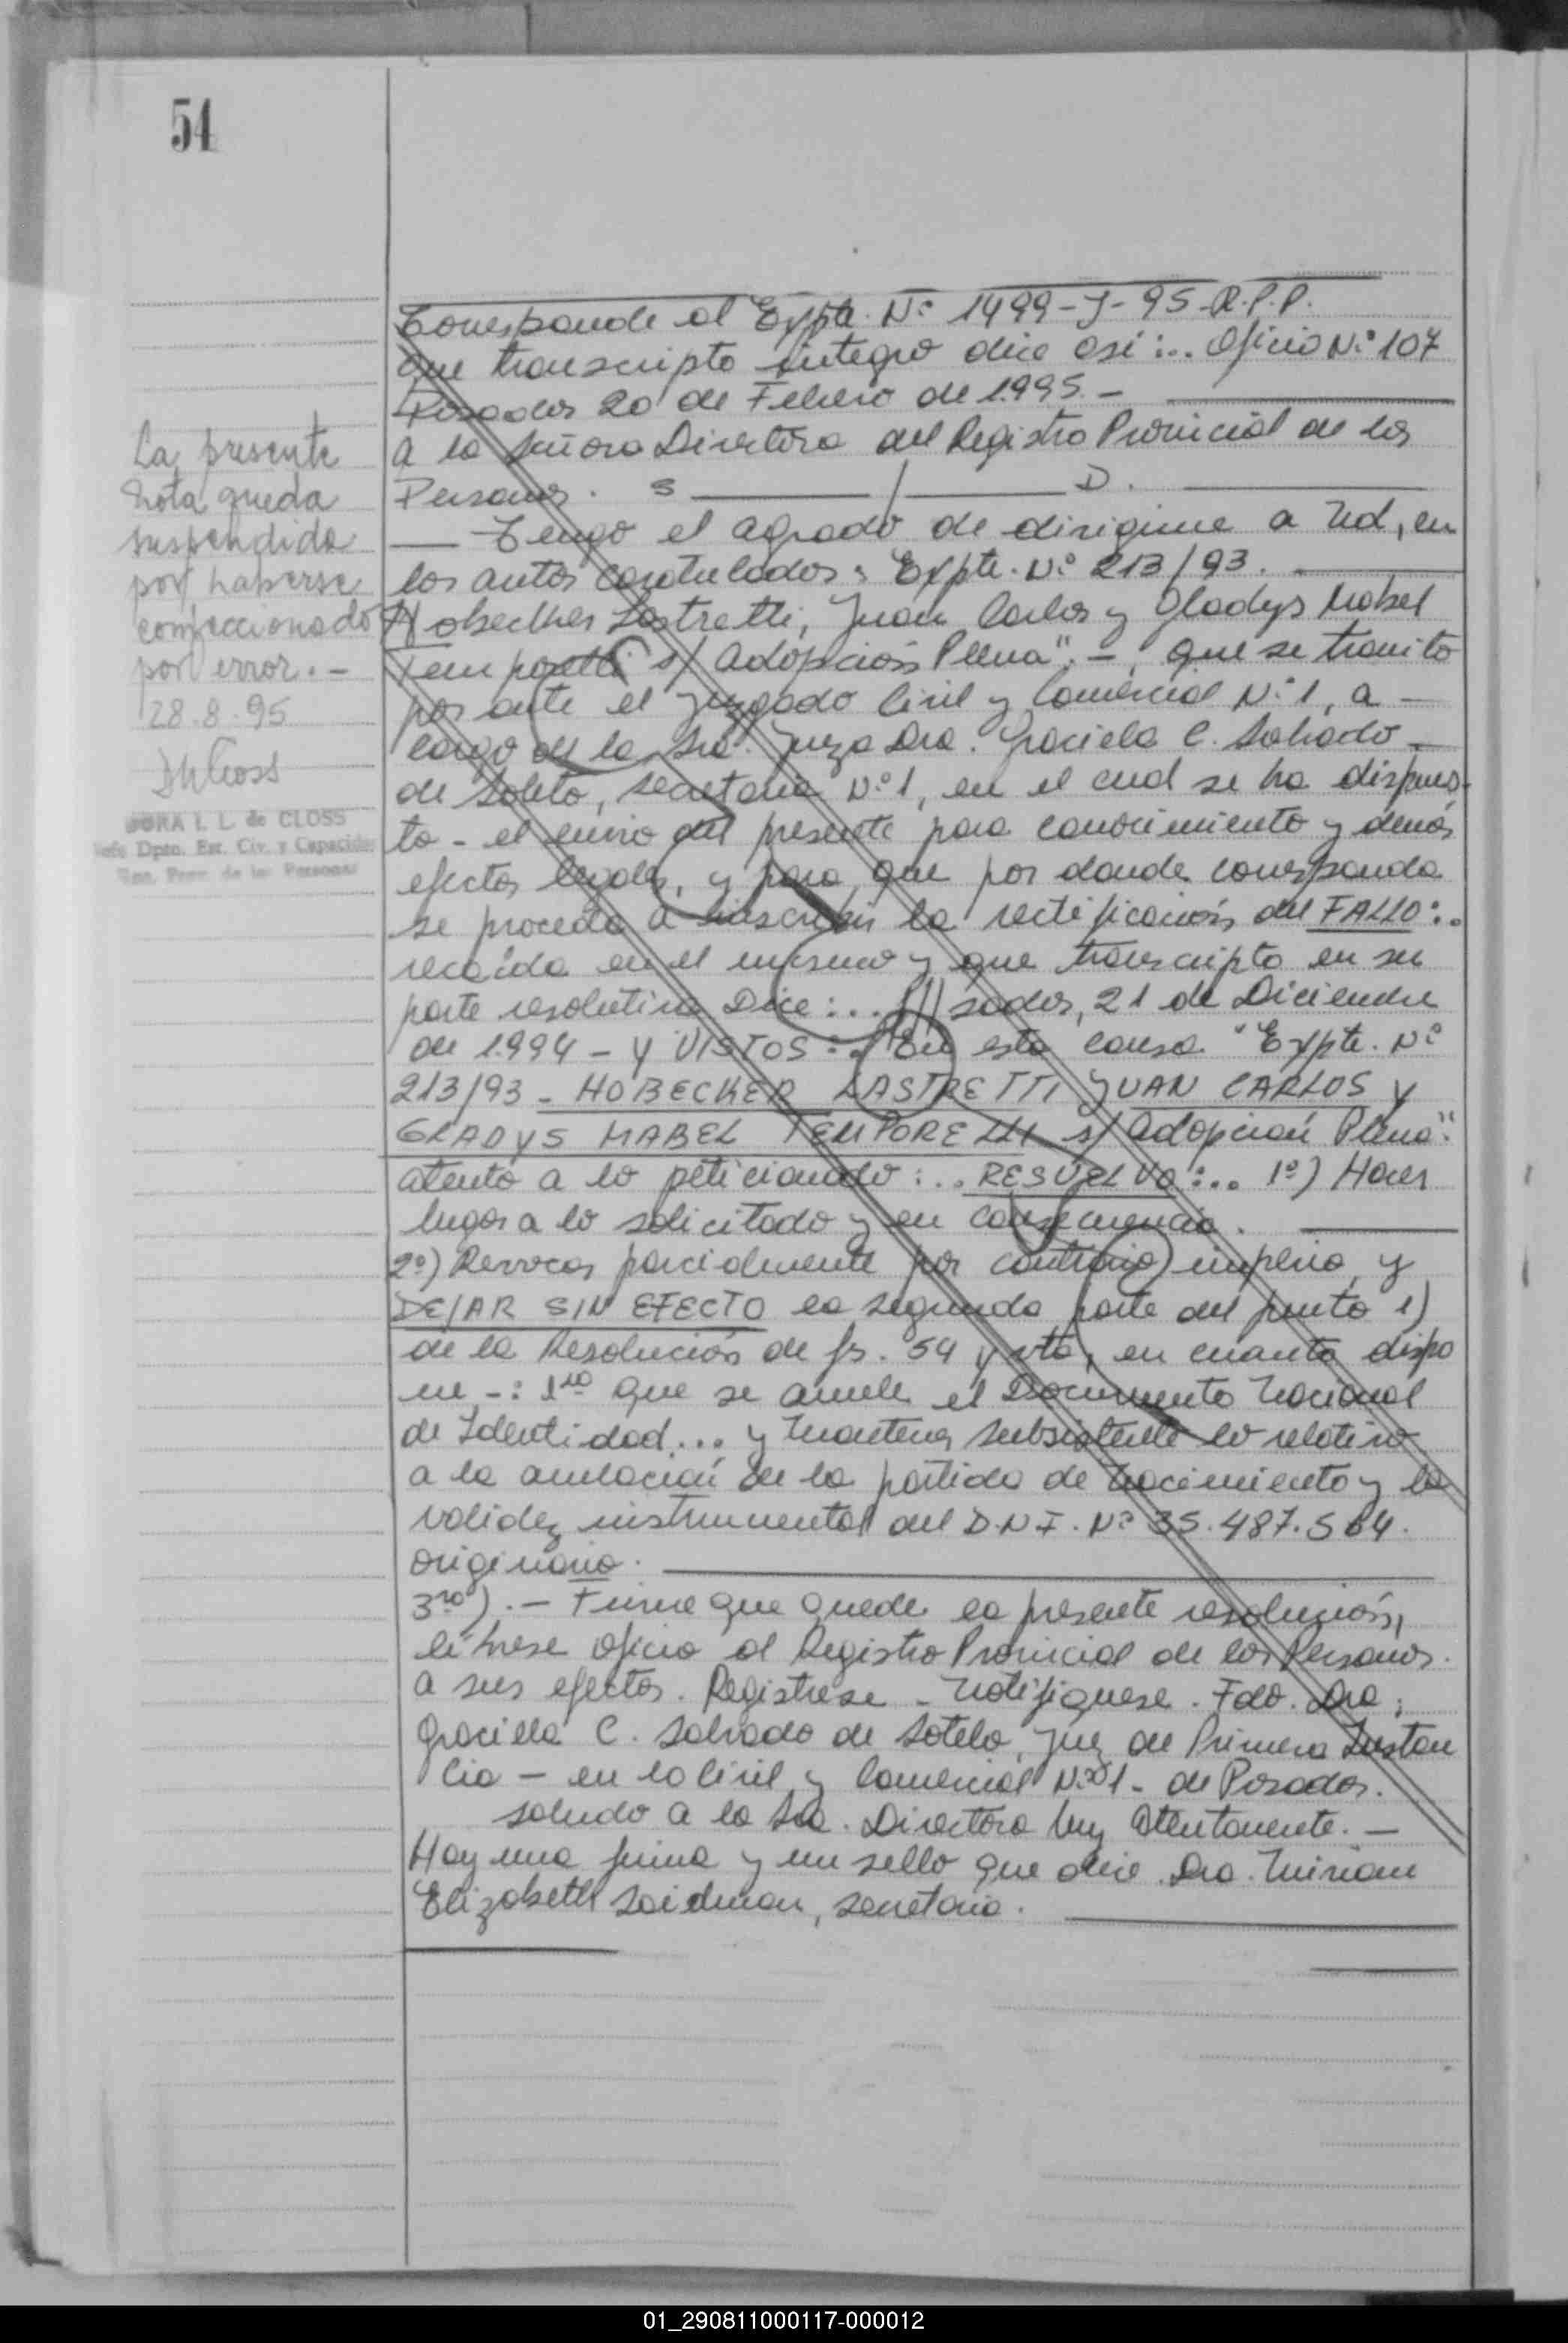 54
Corresponde al Expte. Nº 1499-J-95-R.P.P.
que transcripto integro dice asi:.. Oficio Nº 107
Posadas 20 de Febrero de 1.995.-
A la Señora Directora del Registro Provincial de las
Personas. S / D.
Tengo el agrado de dirigirme a Ud, en
los autos caratulados: Expte. Nº 213/93.
Hobecker Lastretti, Juan Carlos y Gladys Mabel
Temporelli s/ Adopción Plena".-, que se tramito
por ante el Juzgado Civil y Comercial Nº 1, a -
cargo de la Sra. Jueza Dra. Graciela C. Salvado -
de Sotelo, Secretaria Nº 1, en el cual se ha dispues-
to - el envio del presente para conocimiento y demás
efectos legales, y para que por donde corresponda
se proceda a inscribir la rectificación del FALLO:..
recaida en el mismo y que transcripto en su
parte resolutiva Dice:... ///sadas, 21 de Diciembre
de 1.994 - Y VISTOS:.. En esta causa "Expte. Nº
213/93 - HOBECKER LASTRETTI JUAN CARLOS y
GLADYS MABEL TEMPORELLI s/ Adopción Plena".
atento a lo peticionado:.. RESUELVO:.. 1º) Hacer
lugar a lo solicitado y en consecuencia.
2º) Revocar parcialmente por contrario imperio, y
DEJAR SIN EFECTO la segunda parte del punto 1)
de la Resolución de fs. 54 y vta, en cuanto dispo
ne -: 1ro que se anule el Documento Nacional
de Identidad... y Mantener subsistente lo relativo
a la anulación de la partida de nacimiento y la
validez instrumental del D.N.I. Nº 35.487.564.
originario.
3ro).- Firme que quede la presente resolución,
líbrese oficio al Registro Provincial de las Personas.
a sus efectos. Registrese - Notifiquese. Fdo. Dra;
Graciela C. Salvado de Sotelo, Juez de Primera Instan
cia - en lo Civil y Comercial Nº 1 - de Posadas.
saludo a la Sra. Directora Muy Atentamente.-
Hay una firma y un sello que dice Dra. Miriam
Elizabeth Saidman, secretaria.
La presente
nota queda
suspendida
por haberse
confeccionado
por error.-
28.8.95
DORA I. L. de CLOSS
Jefe Dpto. Est. Civ. y Capacidad
Reg. Prov. de las Personas
01_290811000117-000012